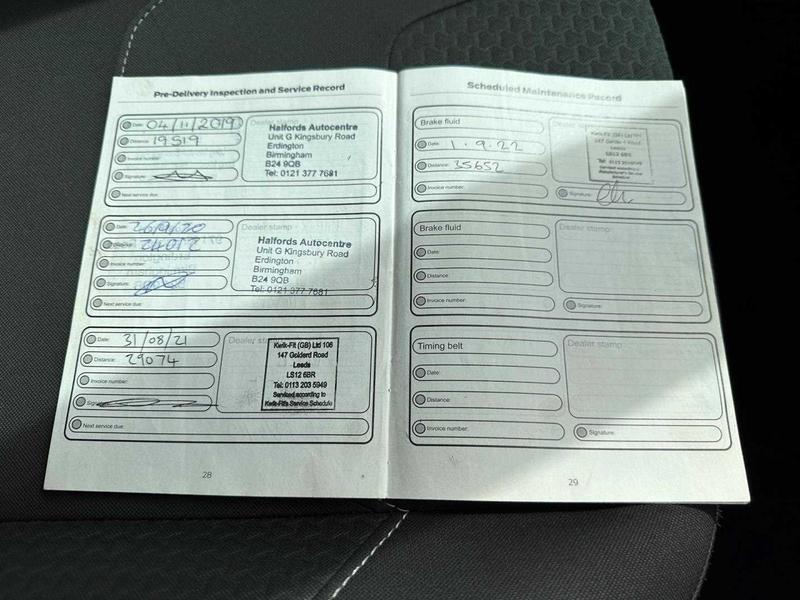 Pre-Delivery Inspection and Service Record
Date: 04/11/2019
Distance: 19519
Invoice number:
Signature:
Next service due:
Dealer stamp
Halfords Autocentre
Unit G Kingsbury Road
Erdington
Birmingham
B24 9QB
Tel: 0121 377 7681
Date: 26/9/20
Distance: 24012
Invoice number:
Signature:
Next service due:
Dealer stamp
Halfords Autocentre
Unit G Kingsbury Road
Erdington
Birmingham
B24 9QB
Tel: 0121 377 7681
Date: 31/08/21
Distance: 29074
Invoice number:
Next service due:
Dealer
Kwik-Fit (GB) Ltd 106
147 Gelderd Road
Leeds
LS12 6BR
Tel: 0113 203 5949
Serviced according to
Kwik-Fit's Service Schedule
28
Scheduled Maintenance Record
Brake fluid
Date: 1.9.22
Distance: 35652
Invoice number:
Kwik-Fit (GB) Ltd
Leeds
LS12 6BR
Signature:
Brake fluid
Date:
Distance:
Invoice number:
Dealer stamp
Signature:
Timing belt
Date:
Distance:
Invoice number:
Dealer stamp
Signature:
29